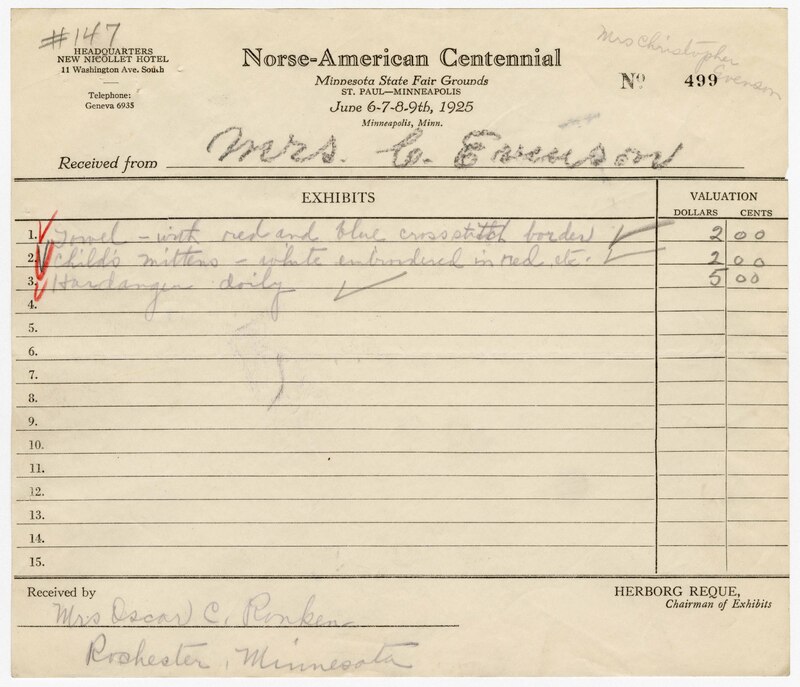 #147
HEADQUARTERS
NEW NICOLLET HOTEL
11 Washington Ave. South
Telephone:
Geneva 6935
Norse-American Centennial
Minnesota State Fair Grounds
ST. PAUL—MINNEAPOLIS
June 6-7-8-9th, 1925
Minneapolis, Minn.
Mrs Christopher
Evenson
Nº 499
Received from Mrs. C. Evenson
EXHIBITS VALUATION
DOLLARS CENTS
1. Towel - with red and blue crossstitch border 2 00
2. Child's mittens - white embrordered in red, etc. 2 00
3. Hardanger doily 5 00
4.
5.
6.
7.
8.
9.
10.
11.
12.
13.
14.
15.
Received by HERBORG REQUE,
Chairman of Exhibits
Mrs Oscar C. Ronken
Rochester, Minnesota